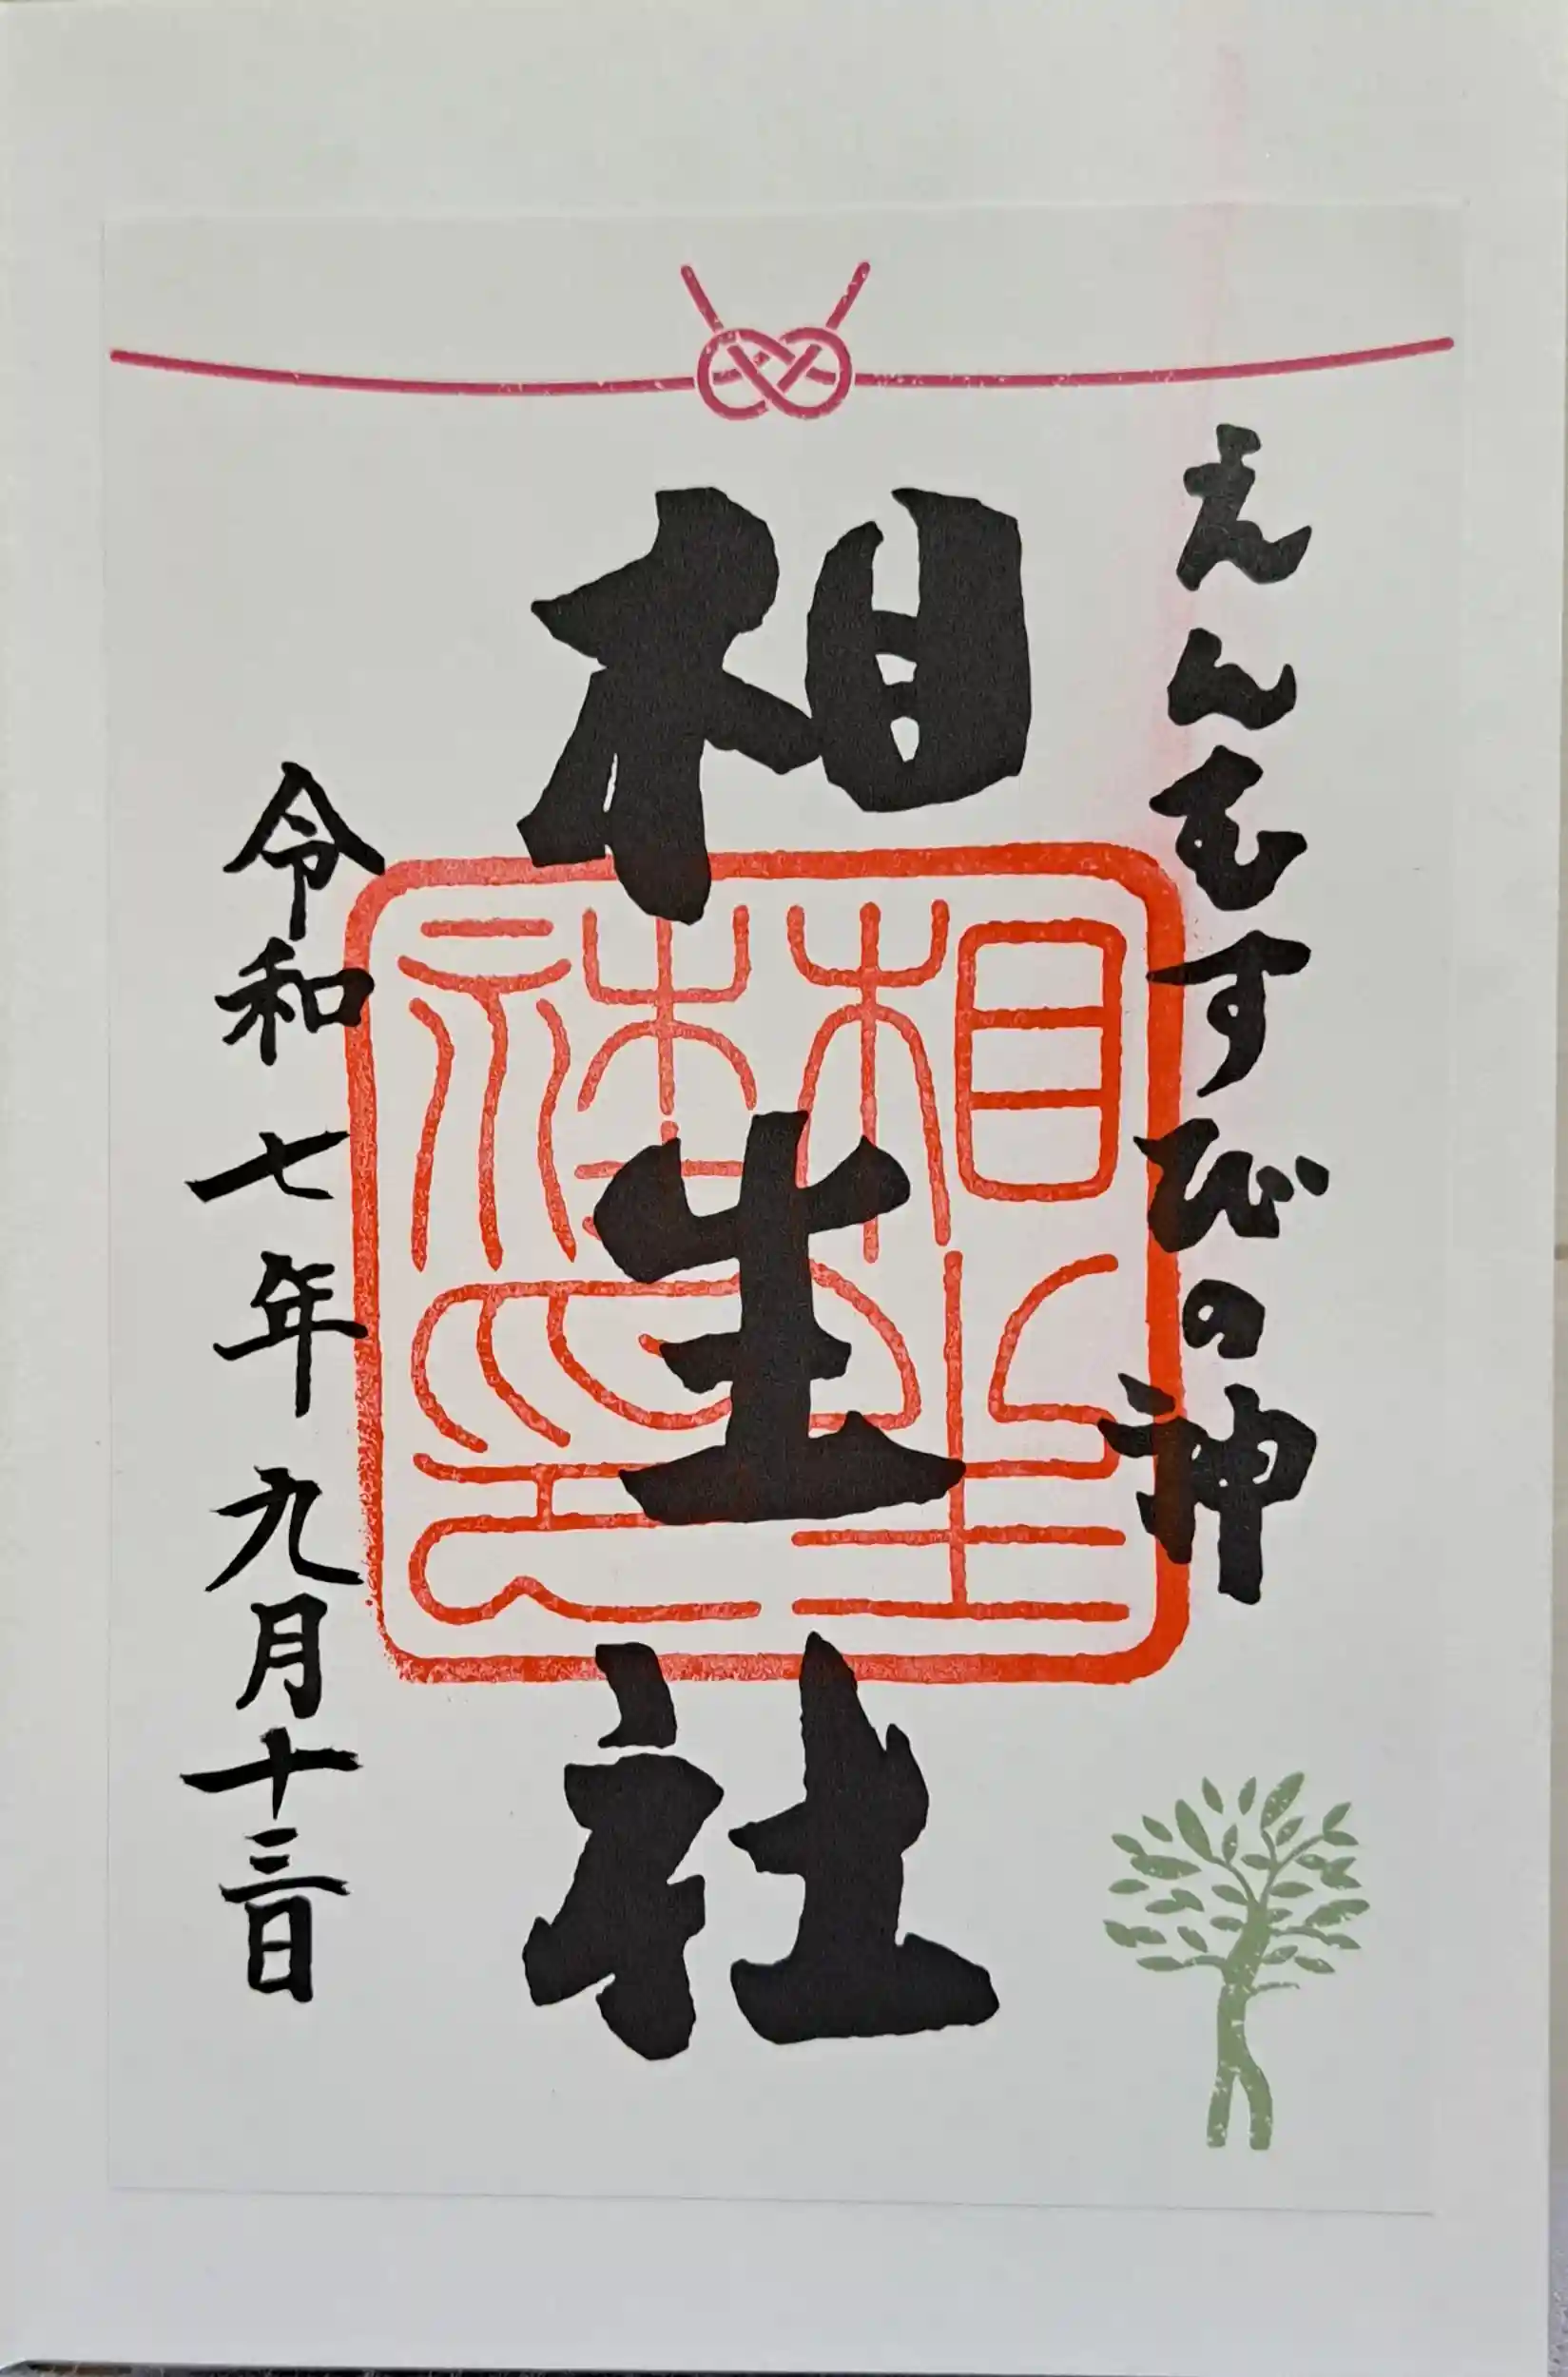 えんむすびの神
相生社
相生社之印
令和七年九月十三日